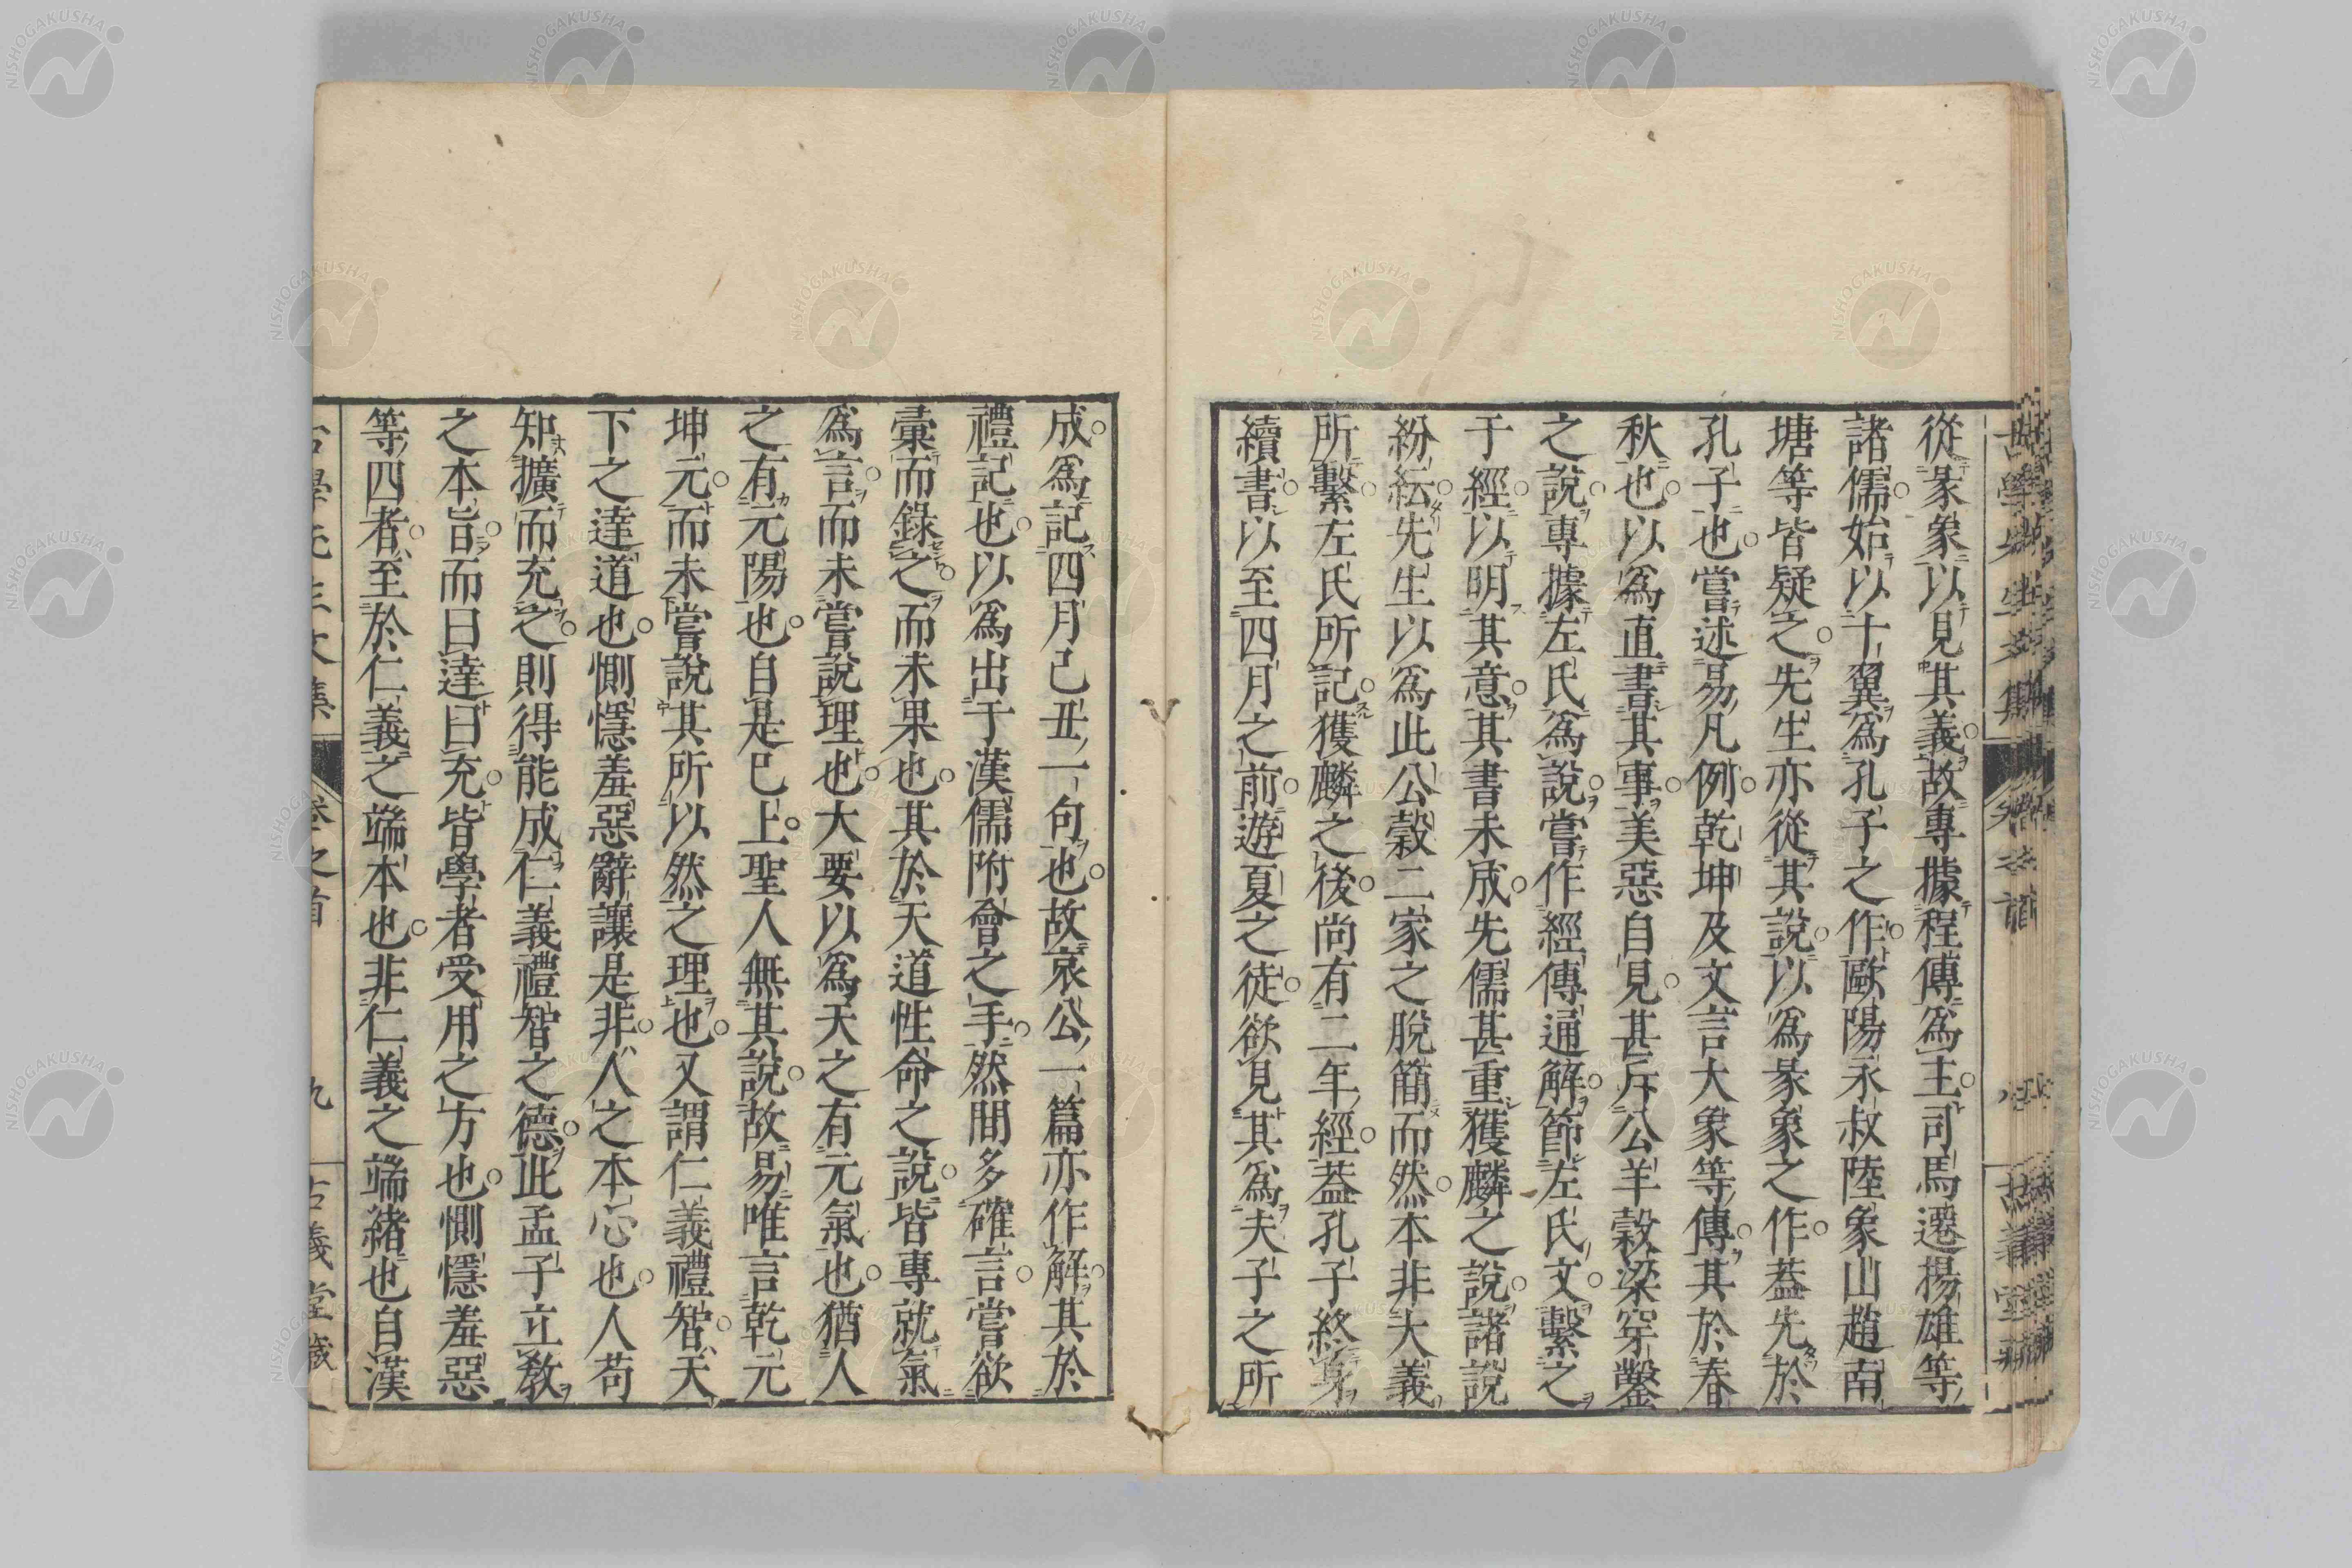 從彖象以見其義故專據程傳爲主司馬遷揚雄等
諸儒始以十翼爲孔子之作歐陽永叔陸象山趙南
塘等皆疑之先生亦從其說以爲彖象之作葢先於
孔子也嘗述易凡例乾坤及文言大象等傳其於春
秋也以爲直書其事美惡自見甚斥公羊穀梁穿鑿
之說專據左氏爲說嘗作經傳通解節左氏文繫之
于經以明其意其書未成先儒甚重獲麟之說諸說
紛紜先生以爲此公穀二家之脫簡而然本非大義
所繫左氏所記獲麟之後尚有二年經葢孔子終身
續書以至四月之前遊夏之徒欲見其爲夫子之所
成爲記四月己丑一句也故哀公一篇亦作解其於
禮記也以爲出于漢儒附會之手然間多確言嘗欲
彙而錄之而未果也其於天道性命之說皆專就氣
爲言而未嘗說理也大要以爲天之有元氣也猶人
之有元陽也自是已上聖人無其說故易唯言乾元
坤元而未嘗說其所以然之理也又謂仁義禮智天
下之達道也惻隱羞惡辭讓是非人之本心也人苟
知擴而充之則得能成仁義禮智之德此孟子立敎
之本旨而曰達曰充皆學者受用之方也惻隱羞惡
等四者至於仁義之端本也非仁義之端緒也自漢
古學先生文集 卷之首 九 古義堂藏